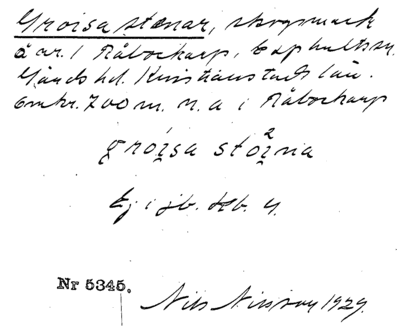 Groisa stenar, skogsmark
å nr. 1 Råbockarp, Ephultssn.
Gärds hd. Kristianstads län.
Omkr. 700 m. n. a i Råbockarp
gróisa stoᶎna
Ej i jb. Hb. 4.
Nr 5345. Nils Nilsson 1929.